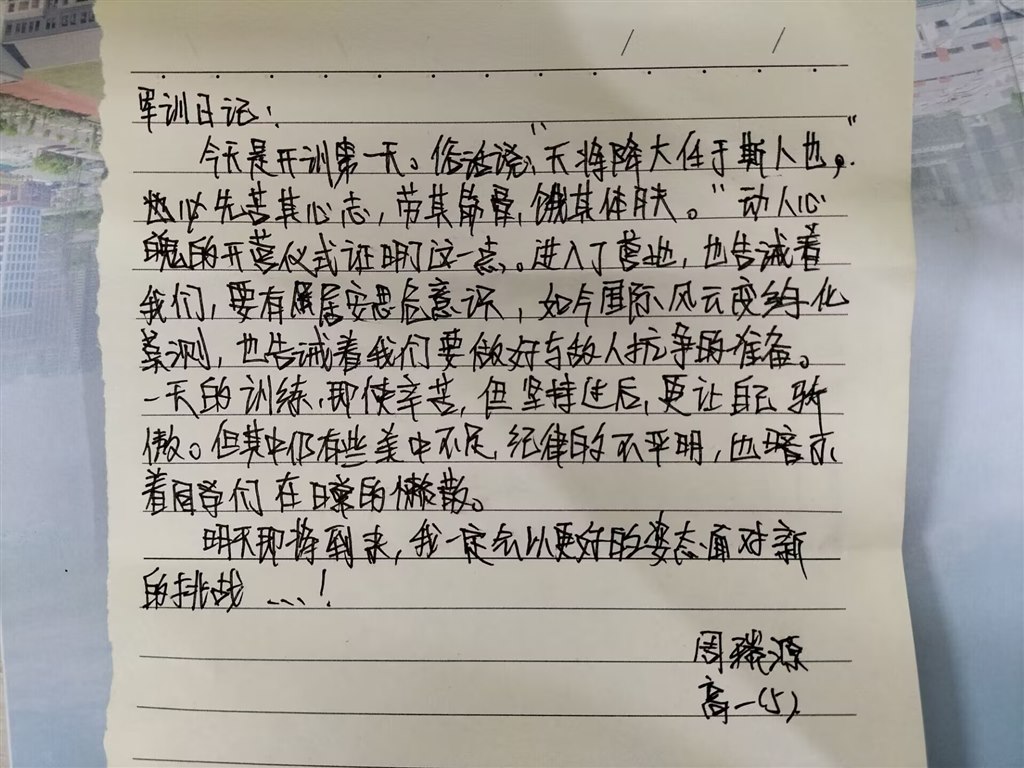 军训日记:
今天是开训第一天。俗话说,"天将降大任于斯人也,"
必先苦其心志,劳其筋骨,饿其体肤。"动人心
魄的开营仪式证明了这一点。进入了营地,也告诫着
我们,要有居安思危意识,如今国际风云变幻化
莫测,也告诫着我们要做好与敌人抗争的准备。
一天的训练,即使辛苦,但坚持过后,更让自己骄
傲。但其中仍有些美中不足,纪律的不严明,也暗示
着同学们在日常的懒散。
明天即将到来,我一定会以更好的姿态面对新
的挑战...!
周源
高一(5)